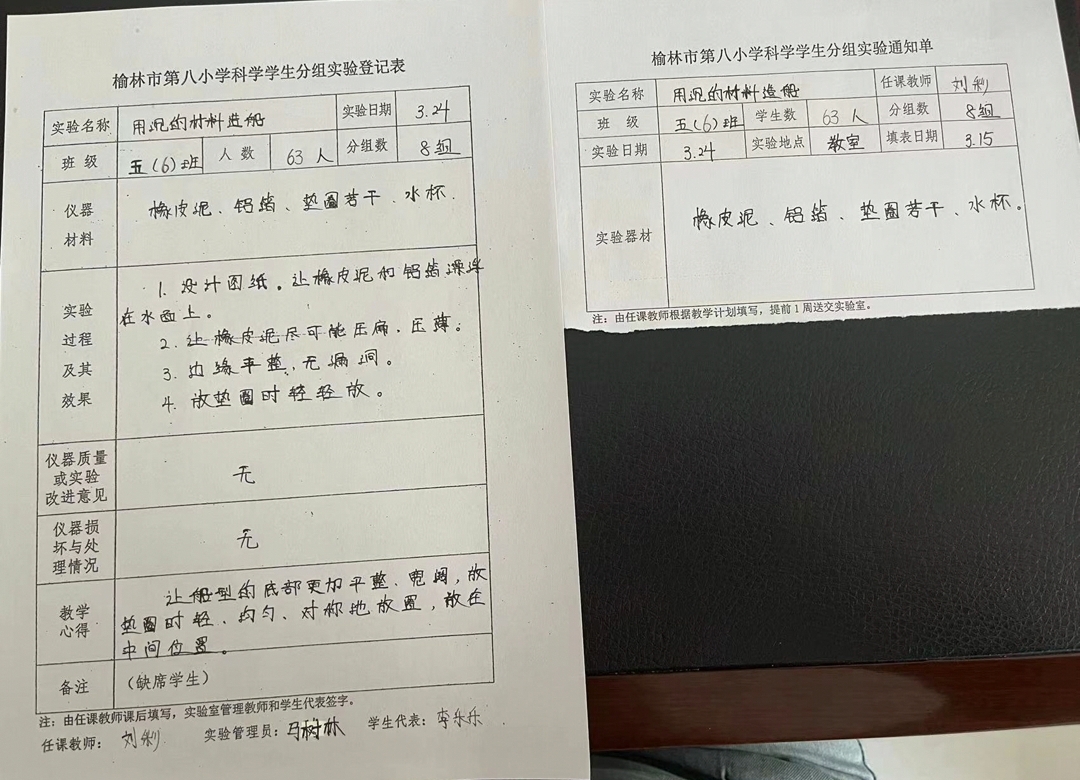 榆林市第八小学科学学生分组实验登记表
实验名称 用沉的材料造船 实验日期 3.24
班 级 五(6)班 人 数 63 人 分组数 8组
仪器
材料
橡皮泥、铝箔、垫圈若干、水杯.
实验
过程
及其
效果
1. 设计图纸。让橡皮泥和铝箔漂浮
在水面上。
2. 让橡皮泥尽可能压扁、压薄;
3. 边缘平整,无漏洞。
4. 放垫圈时轻轻放。
仪器质量
或实验
改进意见
无
仪器损
坏与处
理情况
无
教学
心得
让船型的底部更加平整、宽阔,放
垫圈时轻、均匀、对称地放置,放在
中间位置。
备注 (缺席学生)
注:由任课教师课后填写,实验室管理教师和学生代表签字。
任课教师: 刘 实验管理员:马树林 学生代表:李乐乐
榆林市第八小学科学学生分组实验通知单
实验名称 用沉的材料造船 任课教师 刘
班 级 五(6)班 学生数 63 人 分组数 8组
实验日期 3.24 实验地点 教室 填表日期 3.15
实验器材
橡皮泥、铝箔、垫圈若干、水杯。
注:由任课教师根据教学计划填写,提前1周送交实验室。